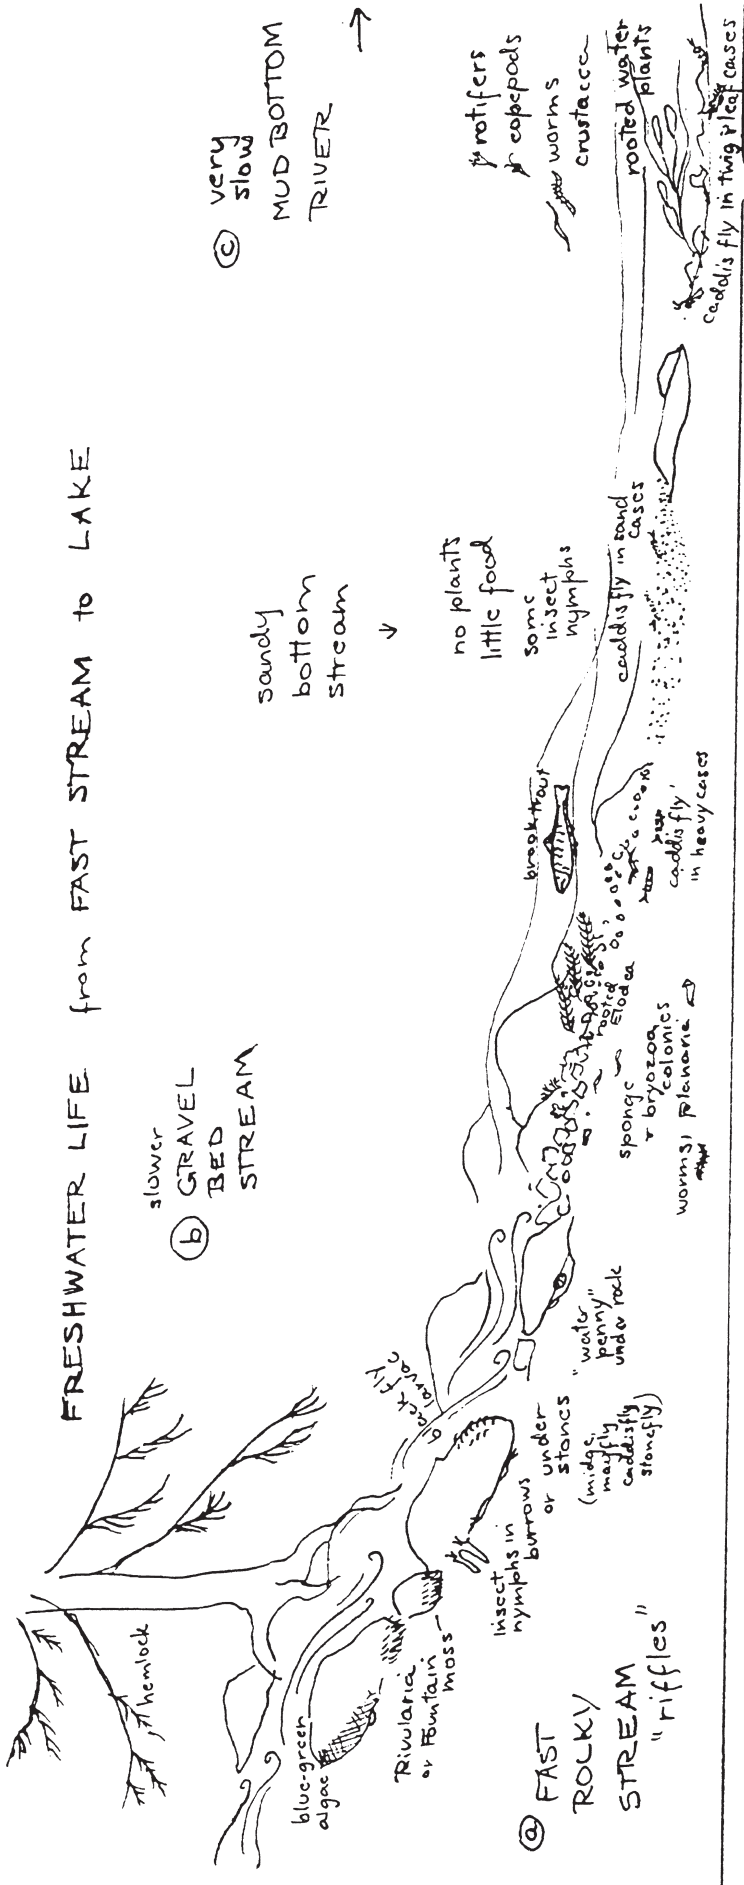 FRESHWATER LIFE from FAST STREAM to LAKE
hemlock
blue-green
algae
Rivularia
or Fountain
moss
ⓐ FAST
ROCKY
STREAM
"riffles"
insect
nymphs in
burrows
or under
stones
(midge,
mayfly
caddisfly
stonefly)
fly
larvae
"water
penny"
under rock
slower
ⓑ GRAVEL
BED
STREAM
sponge
+ bryozoa
colonies
worms, planaria
rooted
Elodea
brook trout
caddis fly
in heavy cases
sandy
bottom
stream
no plants
little food
some
insect
nymphs
caddis fly in sand
cases
ⓒ very
slow
MUD BOTTOM
RIVER
rotifers
copepods
worms
crustacea
rooted water
plants
caddis fly in twig & leaf cases